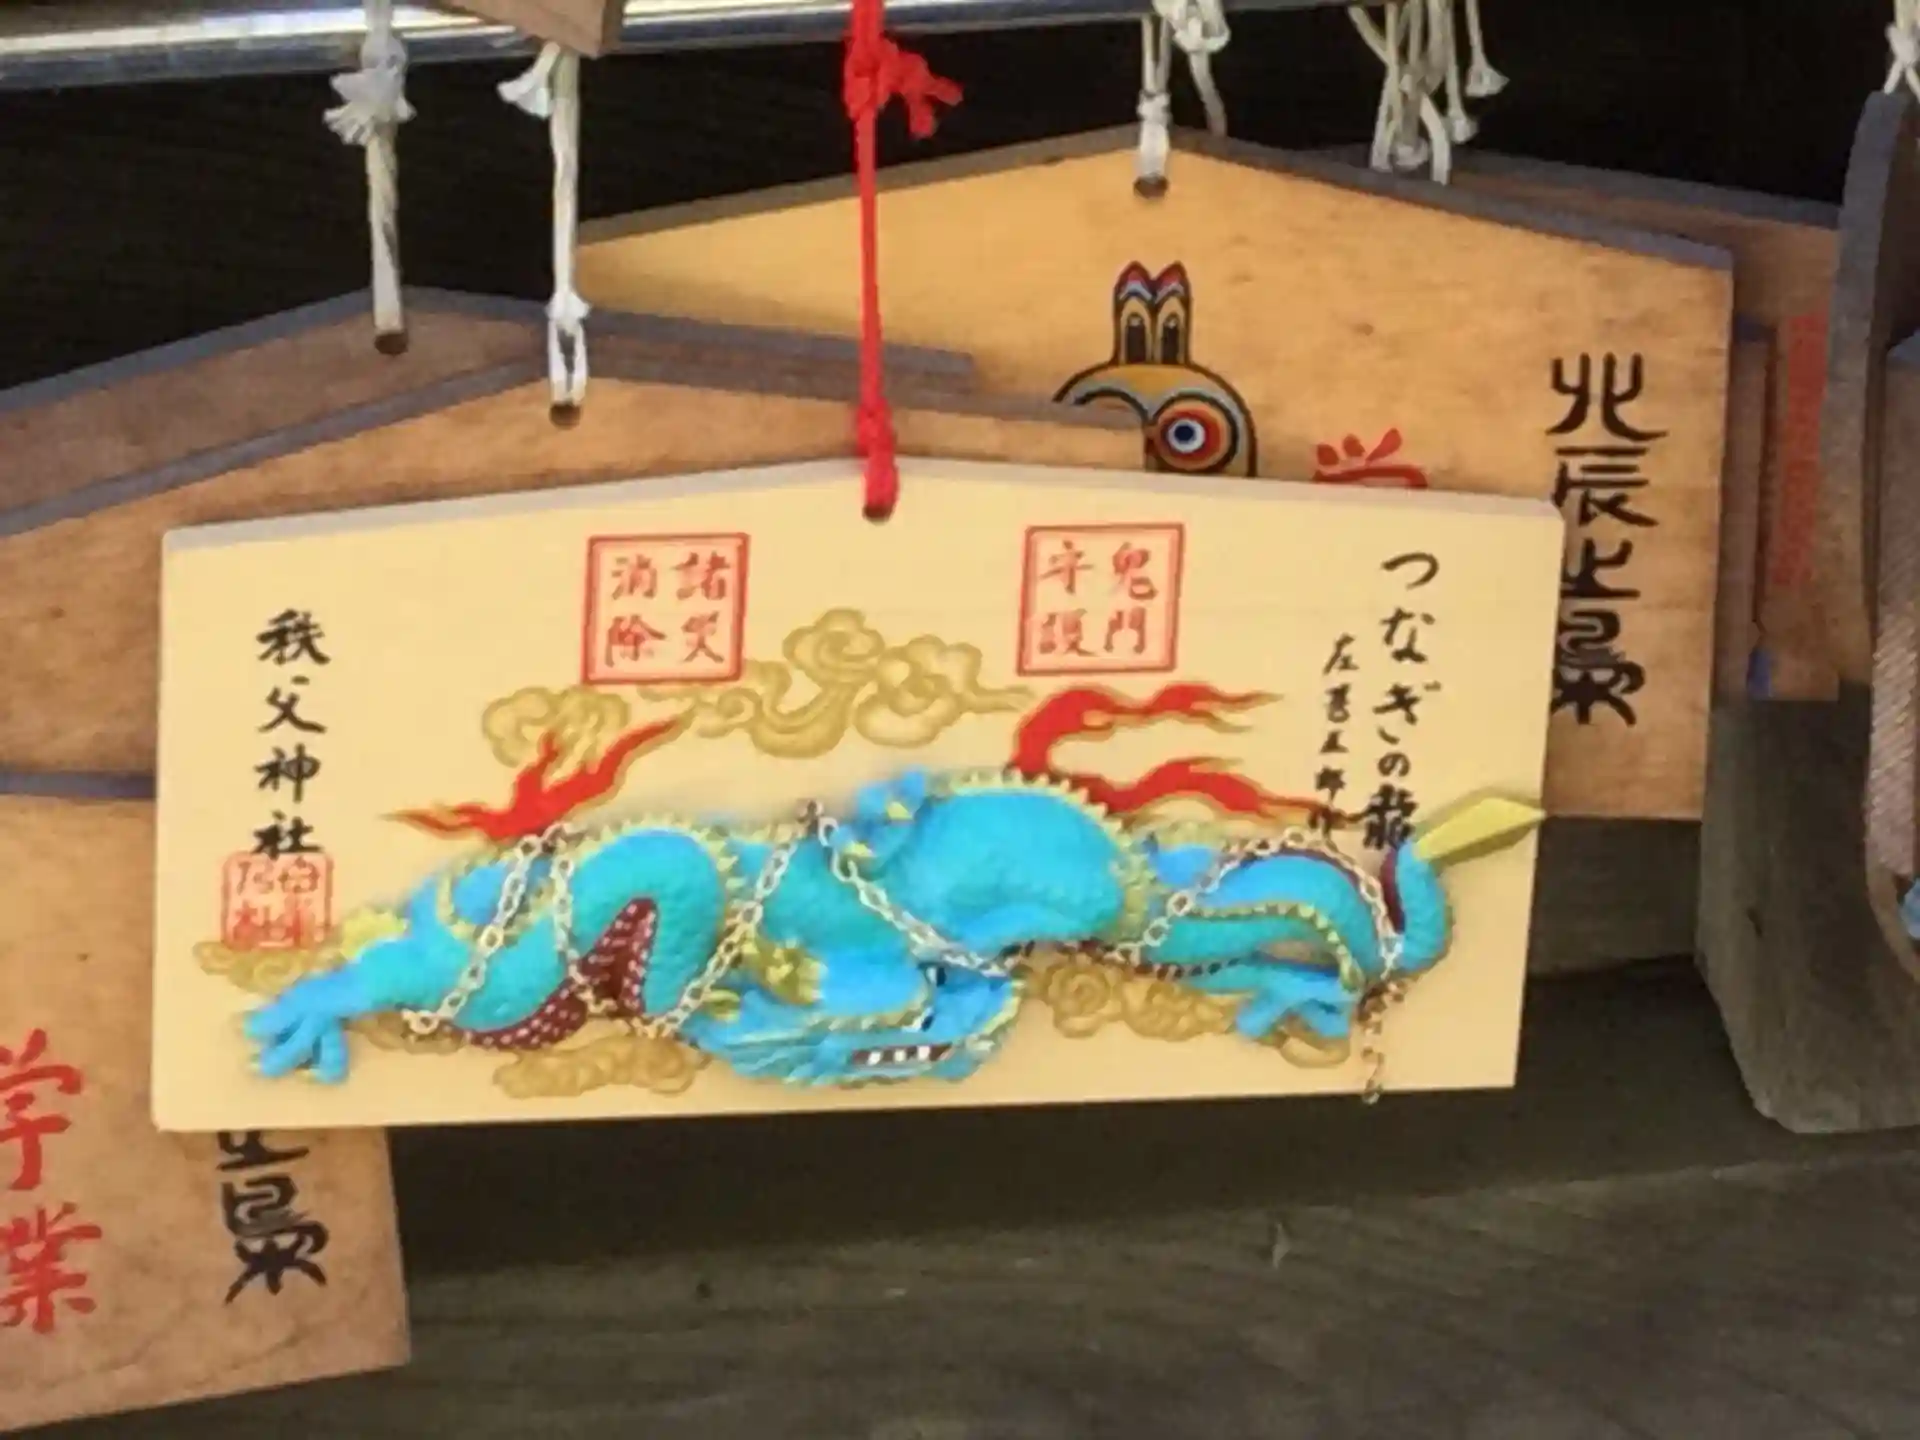 つなぎの龍
左甚五郎作
鬼門
守護
諸災
消除
秩父神社
北辰之梟
学
学業
之梟